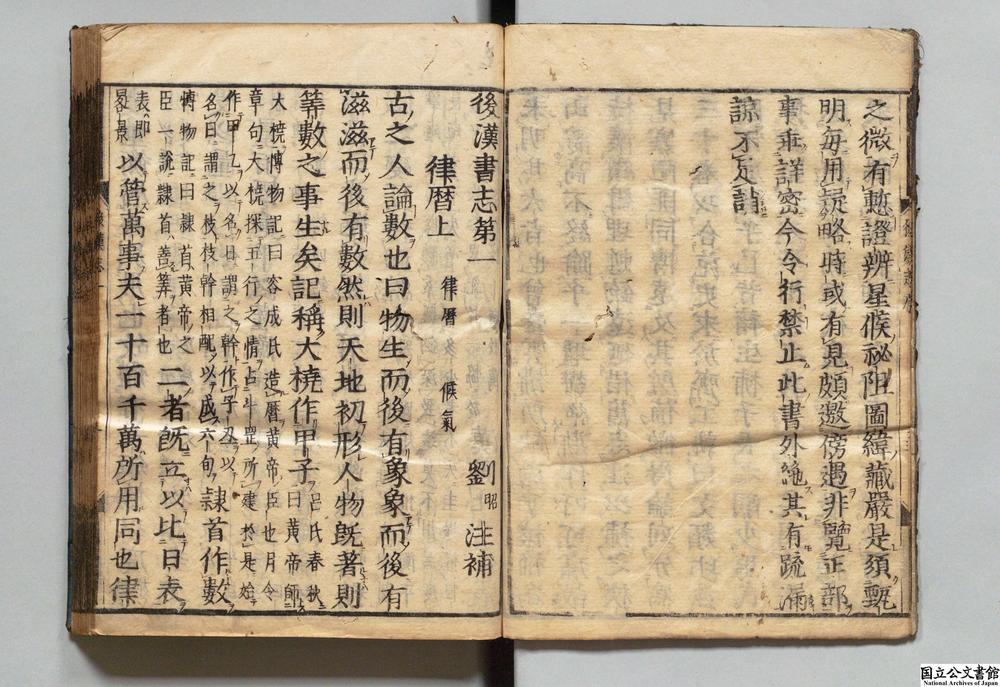 之微有慙證辨星候祕阻圖緯藏嚴是須甄
明每用疑略時或有見頗邀傍遇非覽正部
事乖詳密今令行禁止此書外絕其有疏漏
諒不足誚
後漢書志第一
律暦上 律暦 候氣 劉昭注補
古之人論數也曰物生而後有象象而後有
滋滋而後有數然則天地初形人物旣著則
筭數之事生矣記稱大橈作甲子 呂氏春秋曰黃帝師
大橈博物記曰容成氏造暦黃帝臣也月令
章句大橈探五行之情占斗罡所建於是始
作甲乙以名日謂之幹作子丑以
名日謂之枝枝幹相配以成六旬 隷首作數
博物記曰隷首黃帝之
臣一說隷首善筭者也 二者旣立以比日表
表即
晷景 以管萬事夫一十百千萬所用同也律
国立公文書館
National Archives of Japan